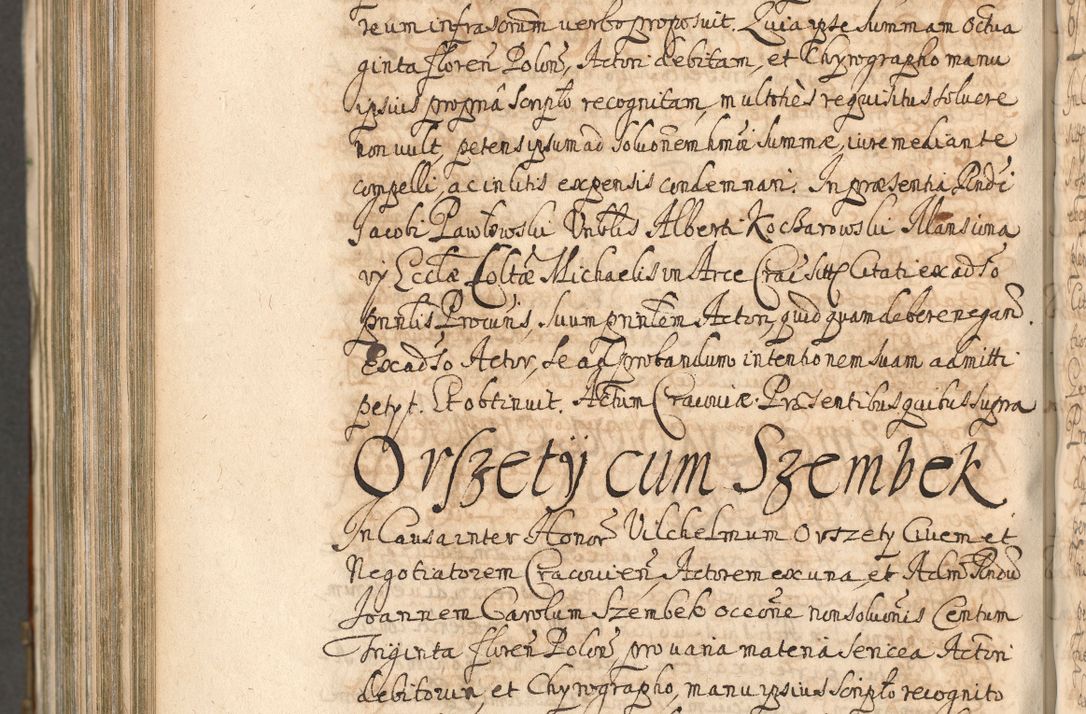 reum infrascriptum verbo proposuit. Quia ipse summam Octua
ginta floren̄ Polon̄, Actori debitam, et Chyrographo manu
ipsius propriâ scripto recognitam, multotiès requisitus soluere
non vult, petens ipsum ad soluōnem hmōi summæ, iure mediante
compelli, ac in litis expensis condemnari. In præsentia Rndi
Jacobi Pawłowski Vnblis Alberti Kocharowski Mansiona
rij Eccłæ Colltæ S Michaelis in Arce Crac̄ Citati ex adſo
prinlis Procuris, suum prinlem Actori, quid quam debere negan̄.
Ex adſo Actor, se ad probandum intentionem suam admitti
petyt. Et obtinuit. Actum Cracouiæ. Præsentibus quibus supra
Orszetÿ cum Szembek
In Causa inter Honor̄ Vilchelmum Orszety Ciuem et
Negotiatorem Cracouien̄, Actorem ex una, et Adm Rndū
Joannem Carolum Szembek occōne non soluōnis Centum
Triginta floren̄ Polon̄, pro varia materia sericea Actori
debitorum, et Chyrographo, manu ipsius scripto recognito